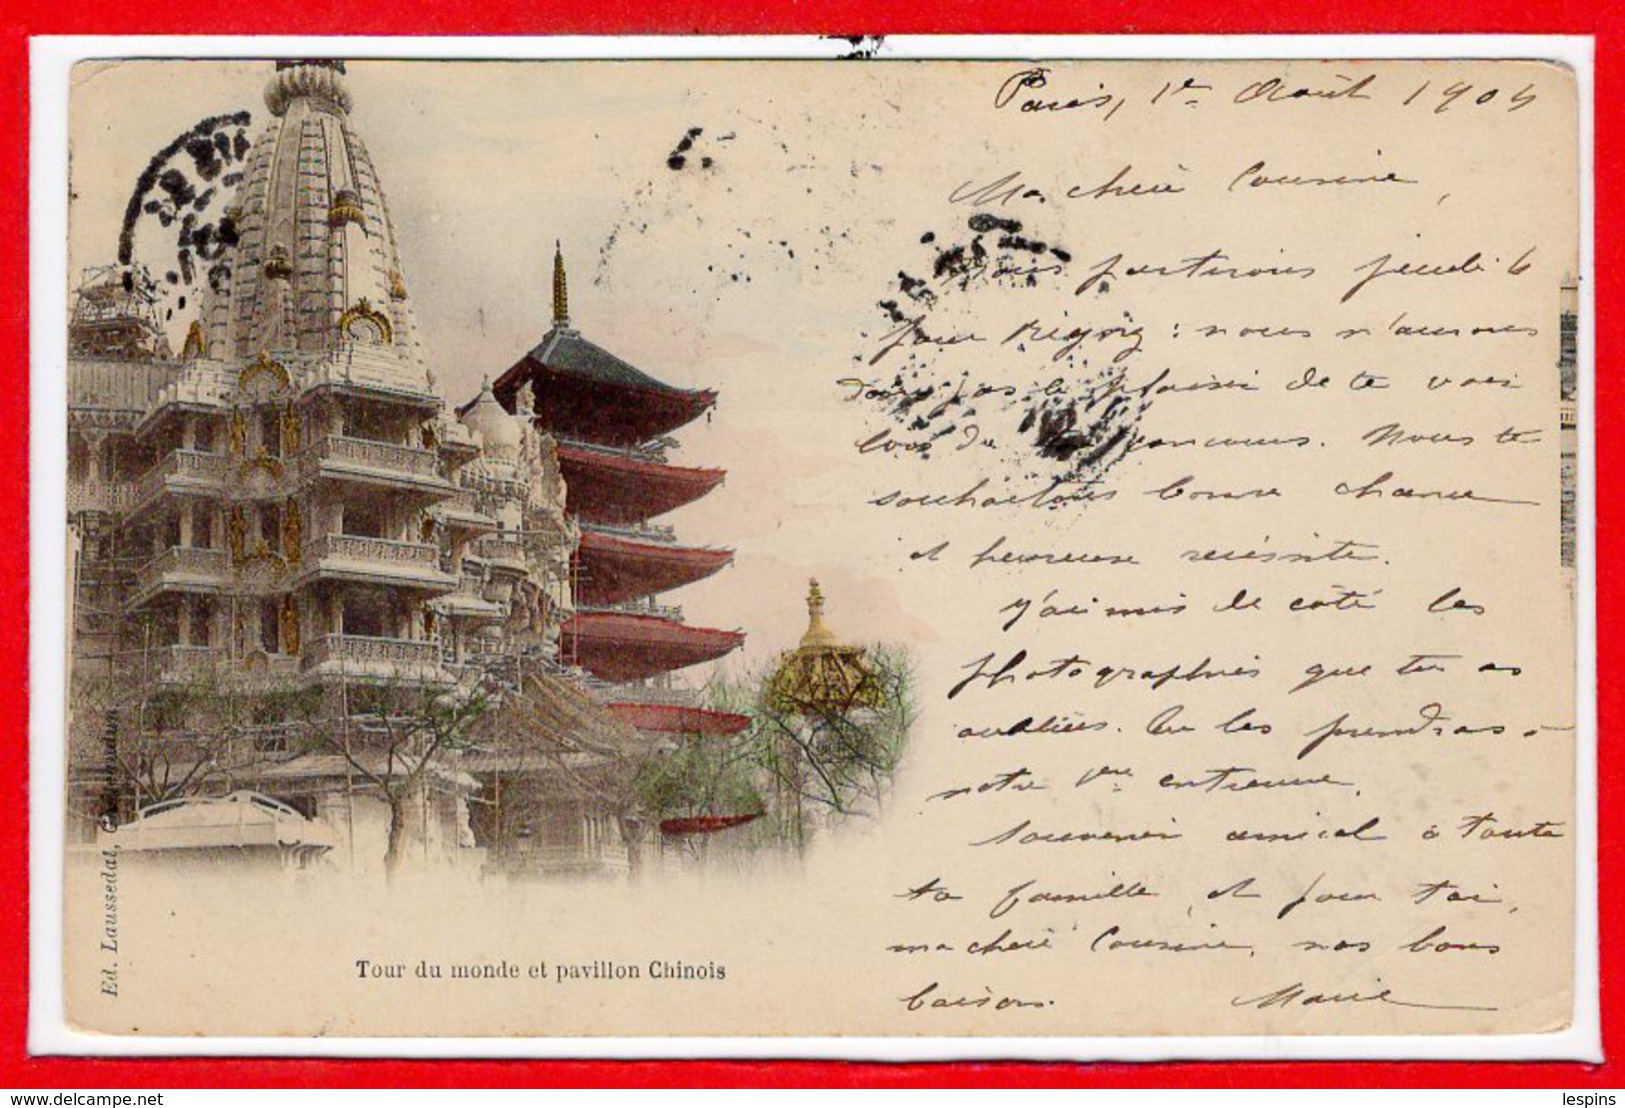 Paris, 1er Août 1904
Ma chère Cousine,
Nous partirons jeudi 4
pour Rigny : nous n'aurons
donc pas le plaisir de te voir
lors du concours. Nous te
souhaitons bonne chance
et heureuse réussite.
J'ai mis de côté les
photographies que tu as
oubliées. Tu les prendras à
notre 1ère entrevue.
Souvenir amical à toute
ta famille, et pour toi,
ma chère Cousine, nos bons
baisers. Marie
Tour du monde et pavillon Chinois
Ed. Laussedat, Châteaudun
lespins